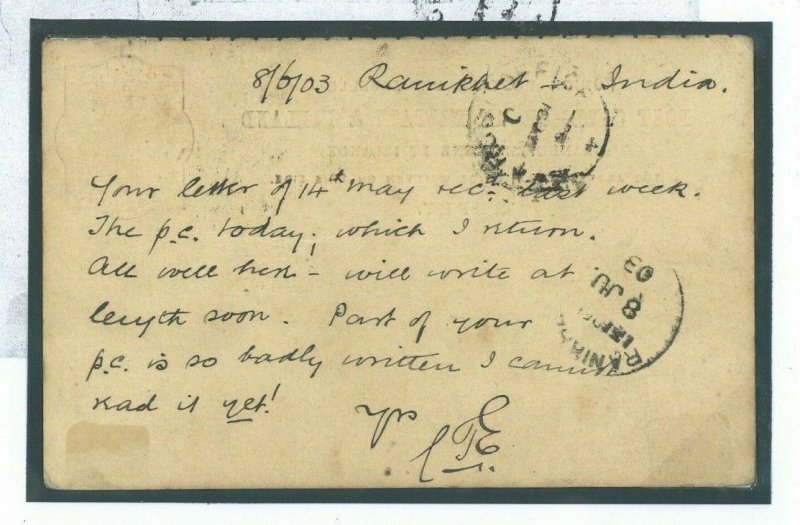 8/6/03 Ranikhet India.
Your letter of 14th May recd last week.
The p.c. today, which I return.
All well here – will write at
length soon. Part of your
p.c. is so badly written I cannot
read it yet!
Yrs
8 JU.
03